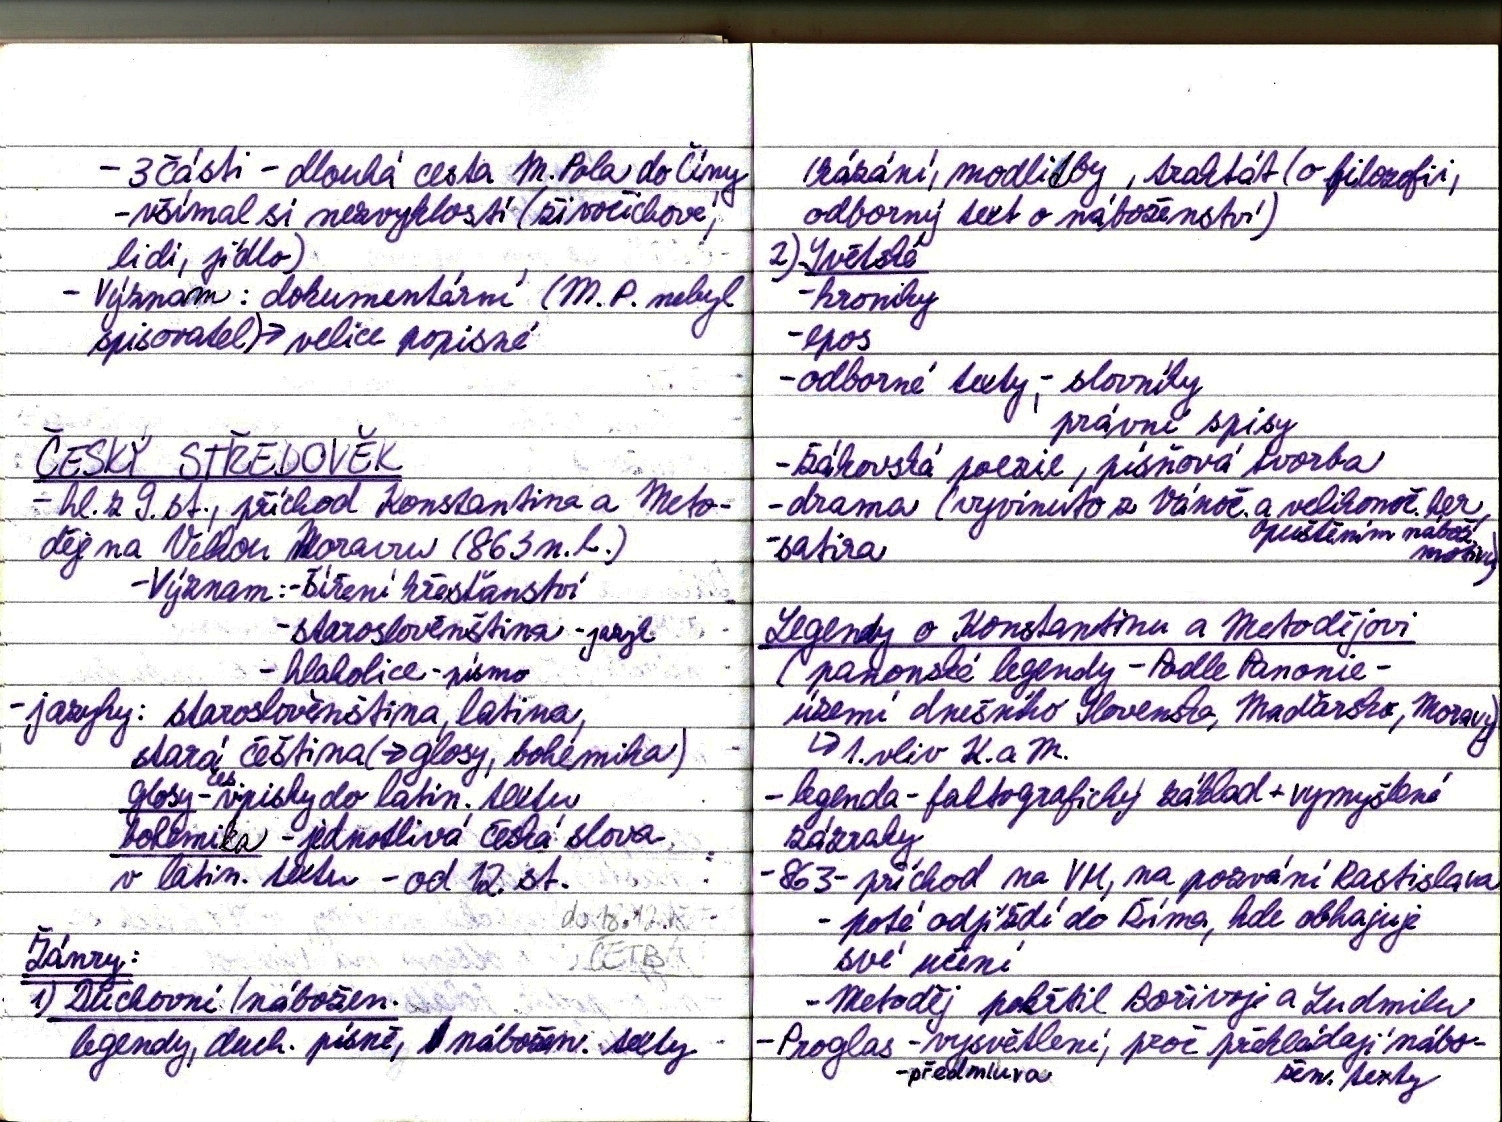 - 3 části - dlouhá cesta M. Pola do Číny
- všímal si nezvyklostí (živočichové,
lidi, jídlo)
- Význam: dokumentární (M.P. nebyl
spisovatel) → velice popisné
ČESKÝ STŘEDOVĚK
- hl. z 9. st., příchod Konstantina a Meto-
děje na Velkou Moravu (863 n.l.)
- Význam: - šíření křesťanství
- staroslověnština - jazyk
- hlaholice - písmo
- jazyky: staroslověnština, latina,
stará čeština (→ glosy, bohemika)
glosy - čes. vpisky do latin. textu
bohemika - jednotlivá česká slova
v latin. textu - od 12. st.
ČETB
Žánry:
1) Duchovní/nábožen.
legendy, duch. písně, nábožen. texty
(kázání, modlitby, traktát (o filozofii,
odborný text o náboženství)
2) Světské
- kroniky
- epos
- odborné texty, - slovníky
právní spisy
- žákovská poezie, písňová tvorba
- drama (vyvinuto z Vánoč. a velikonoč. her,
opuštěním nábož.
- satira
motivů)
Legendy o Konstantinu a Metodějovi
(panonské legendy - Podle Panonie -
území dnešního Slovenska, Maďarska, Moravy)
↳ 1. vliv K. a M.
- legenda - faktografický základ + vymyšlené
zázraky
- 863 - příchod na VM, na pozvání Rastislava
- poté odjíždí do Říma, kde obhajuje
své učení
- Metoděj pokřtil Bořivoje a Ludmilu
- Proglas - vysvětlení, proč překládají nábo-
- předmluva
žen. texty